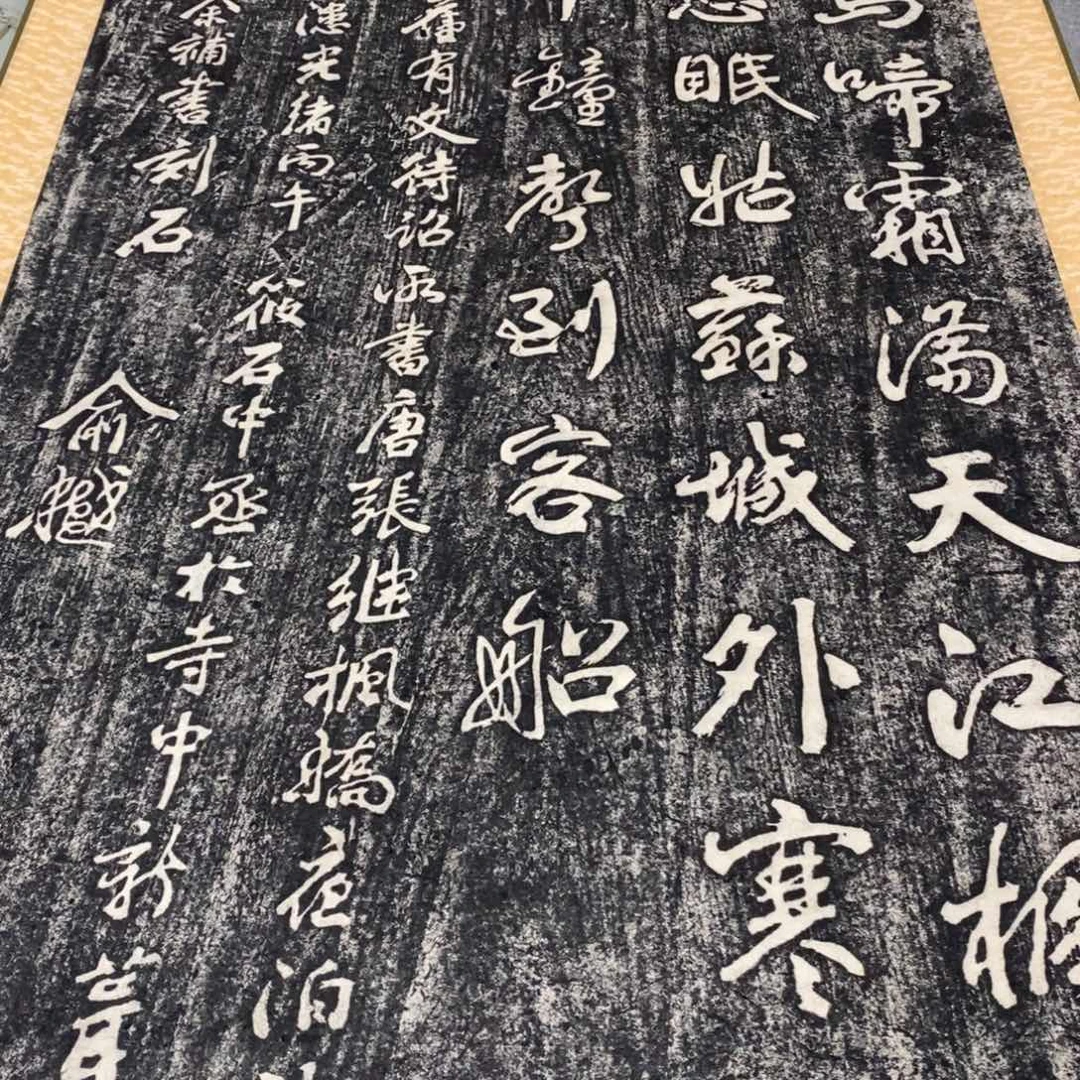 烏啼霜滿天江楓
愁眠姑蘇城外寒
鐘聲到客船
舊有文待詔所書唐張繼楓橋夜泊
漶光緒丙午筱石中丞於寺中新葺
余補書刻石
俞樾